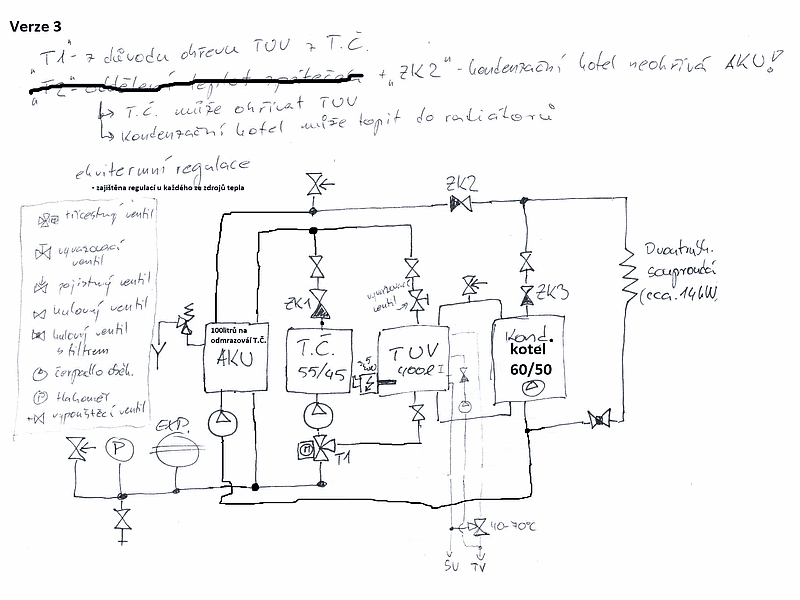 Verze 3
"T1" - z důvodu ohřevu TUV z T.Č.
"T2" - oddělení teplot zpátečka + "ZK2" - kondenzační kotel neohřívá AKU!
↳ T.Č. může ohřívat TUV
↳ Kondenzační kotel může topit do radiátorů
ekvitermní regulace
• zajištěna regulací u každého ze zdrojů tepla
třícestný ventil
vyvažovací
ventil
pojistný ventil
kulový ventil
kulový ventil
s filtrem
čerpadlo oběh.
P tlakoměr
vypouštěcí ventil
ZK2
ZK1
vyvažovací
ventil
ZK3
souproudá
(cca. 14kW)
100litrů na
odmrazování T.Č.
AKU
T.Č.
55/45
TUV
400l
Kond.
kotel
60/50
EXP.
P
M
T1
40-70°C
SV
TV